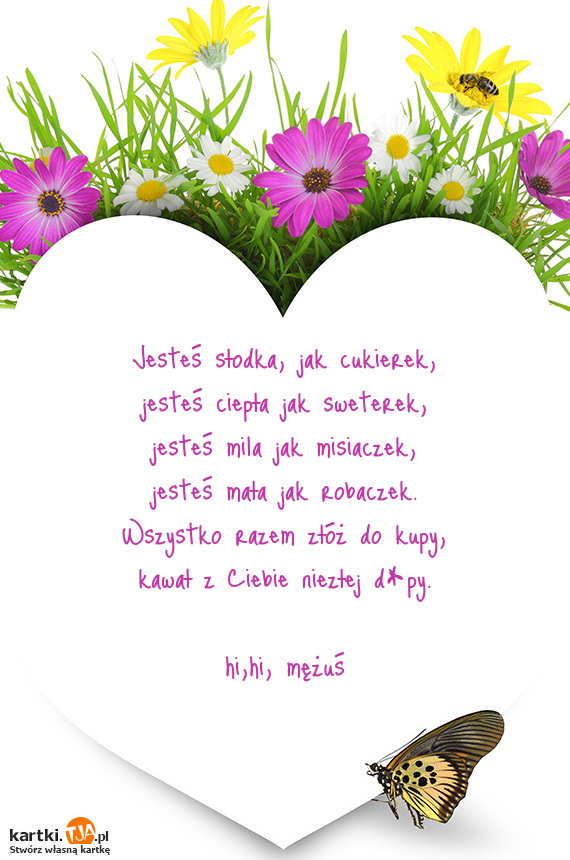 Jesteś słodka, jak cukierek,
jesteś ciepła jak sweterek,
jesteś mila jak misiaczek,
jesteś mała jak robaczek.
Wszystko razem złóż do kupy,
kawał z Ciebie niezłej d*py.
hi,hi, mężuś
kartki.TJA.pl
Stwórz własną kartkę